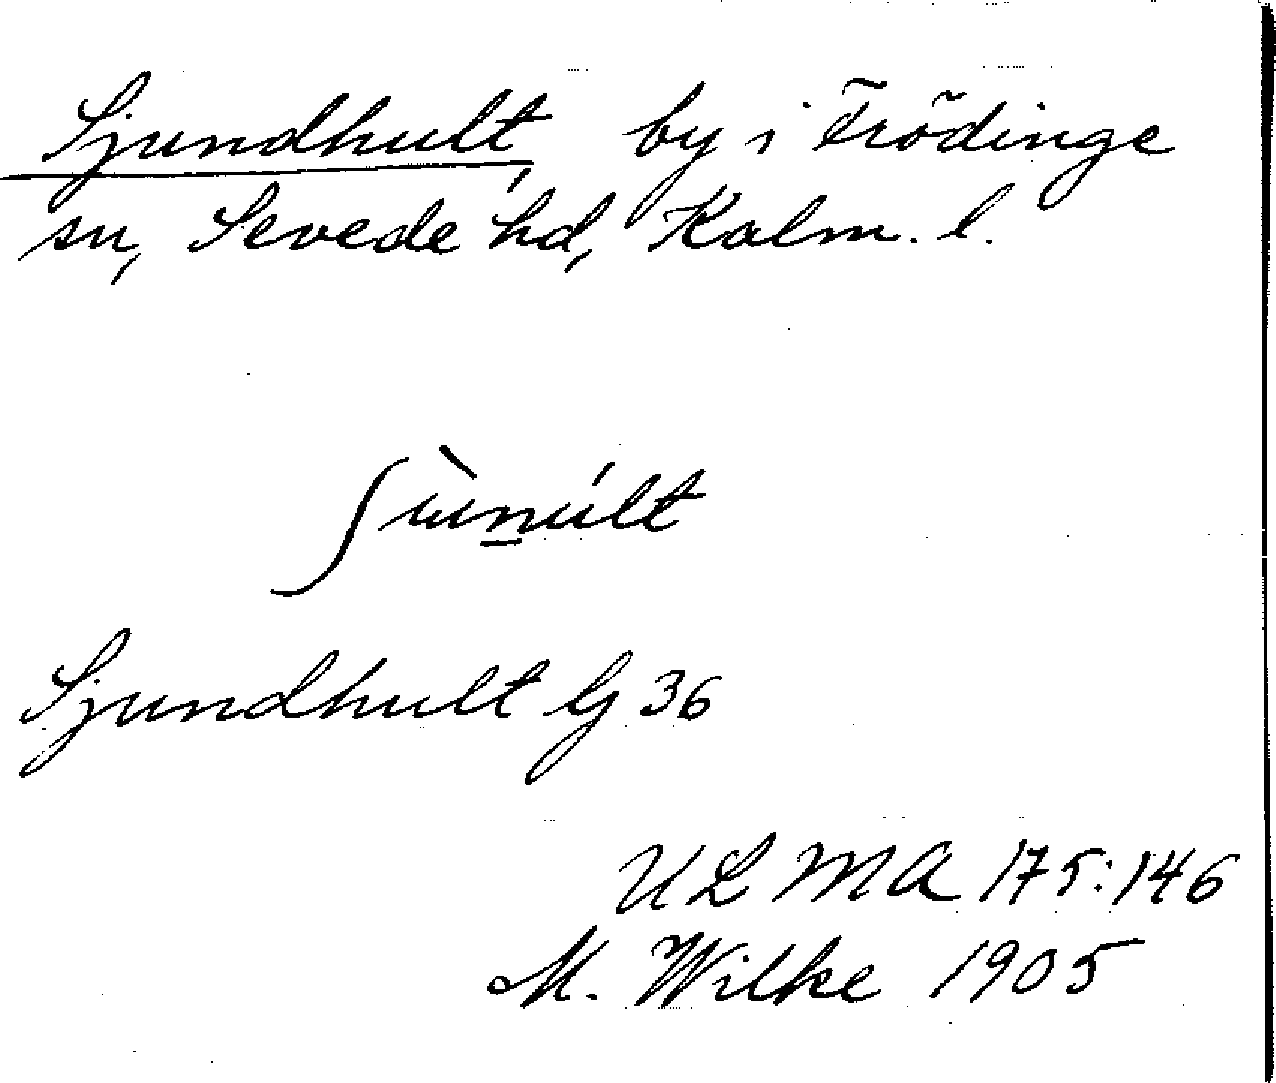 Sjundhult, by i Frödinge
sn, Sevede hd, Kalm. l.
ʃùnúlt
Sjundhult Gj 36
ULMA 175:146
M. Wilke 1905